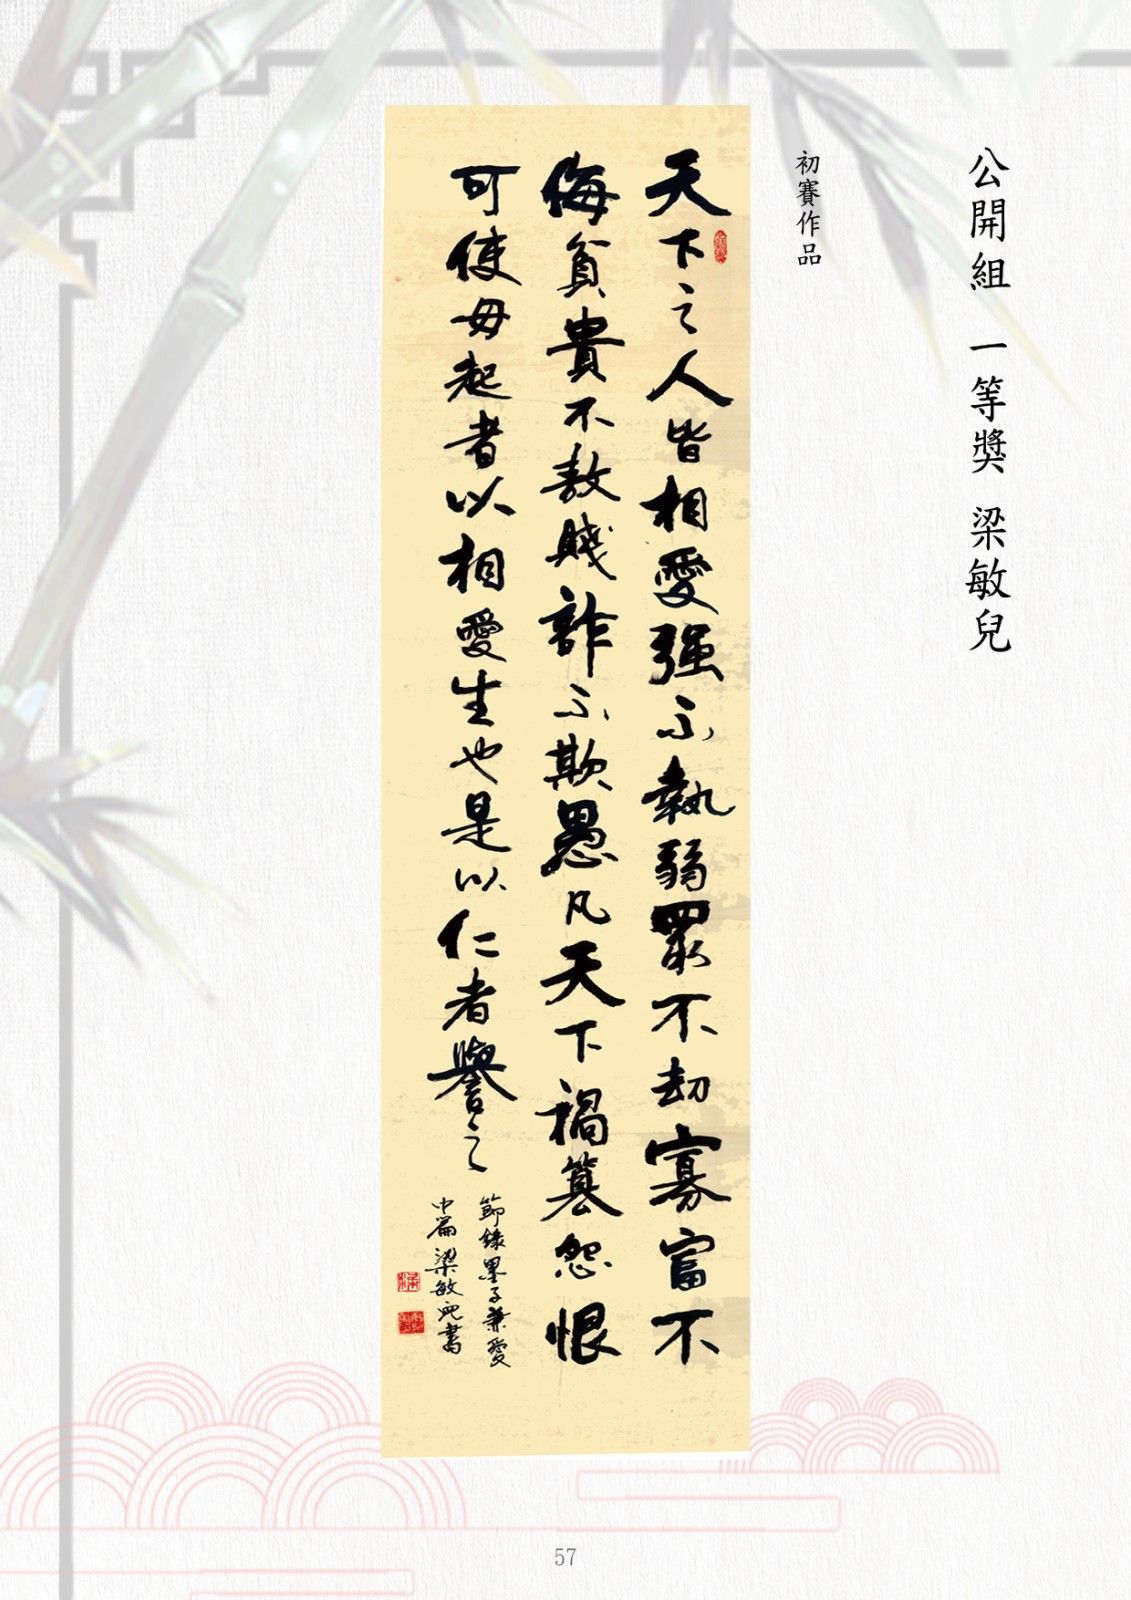 公開組 一等獎 梁敏兒
初賽作品
天下之人皆相愛强不執弱眾不劫寡富不
侮貧貴不敖賤詐不欺愚凡天下禍篡怨恨
可使毋起者以相愛生也是以仁者譽之
節錄墨子兼愛
中篇梁敏兒書
57